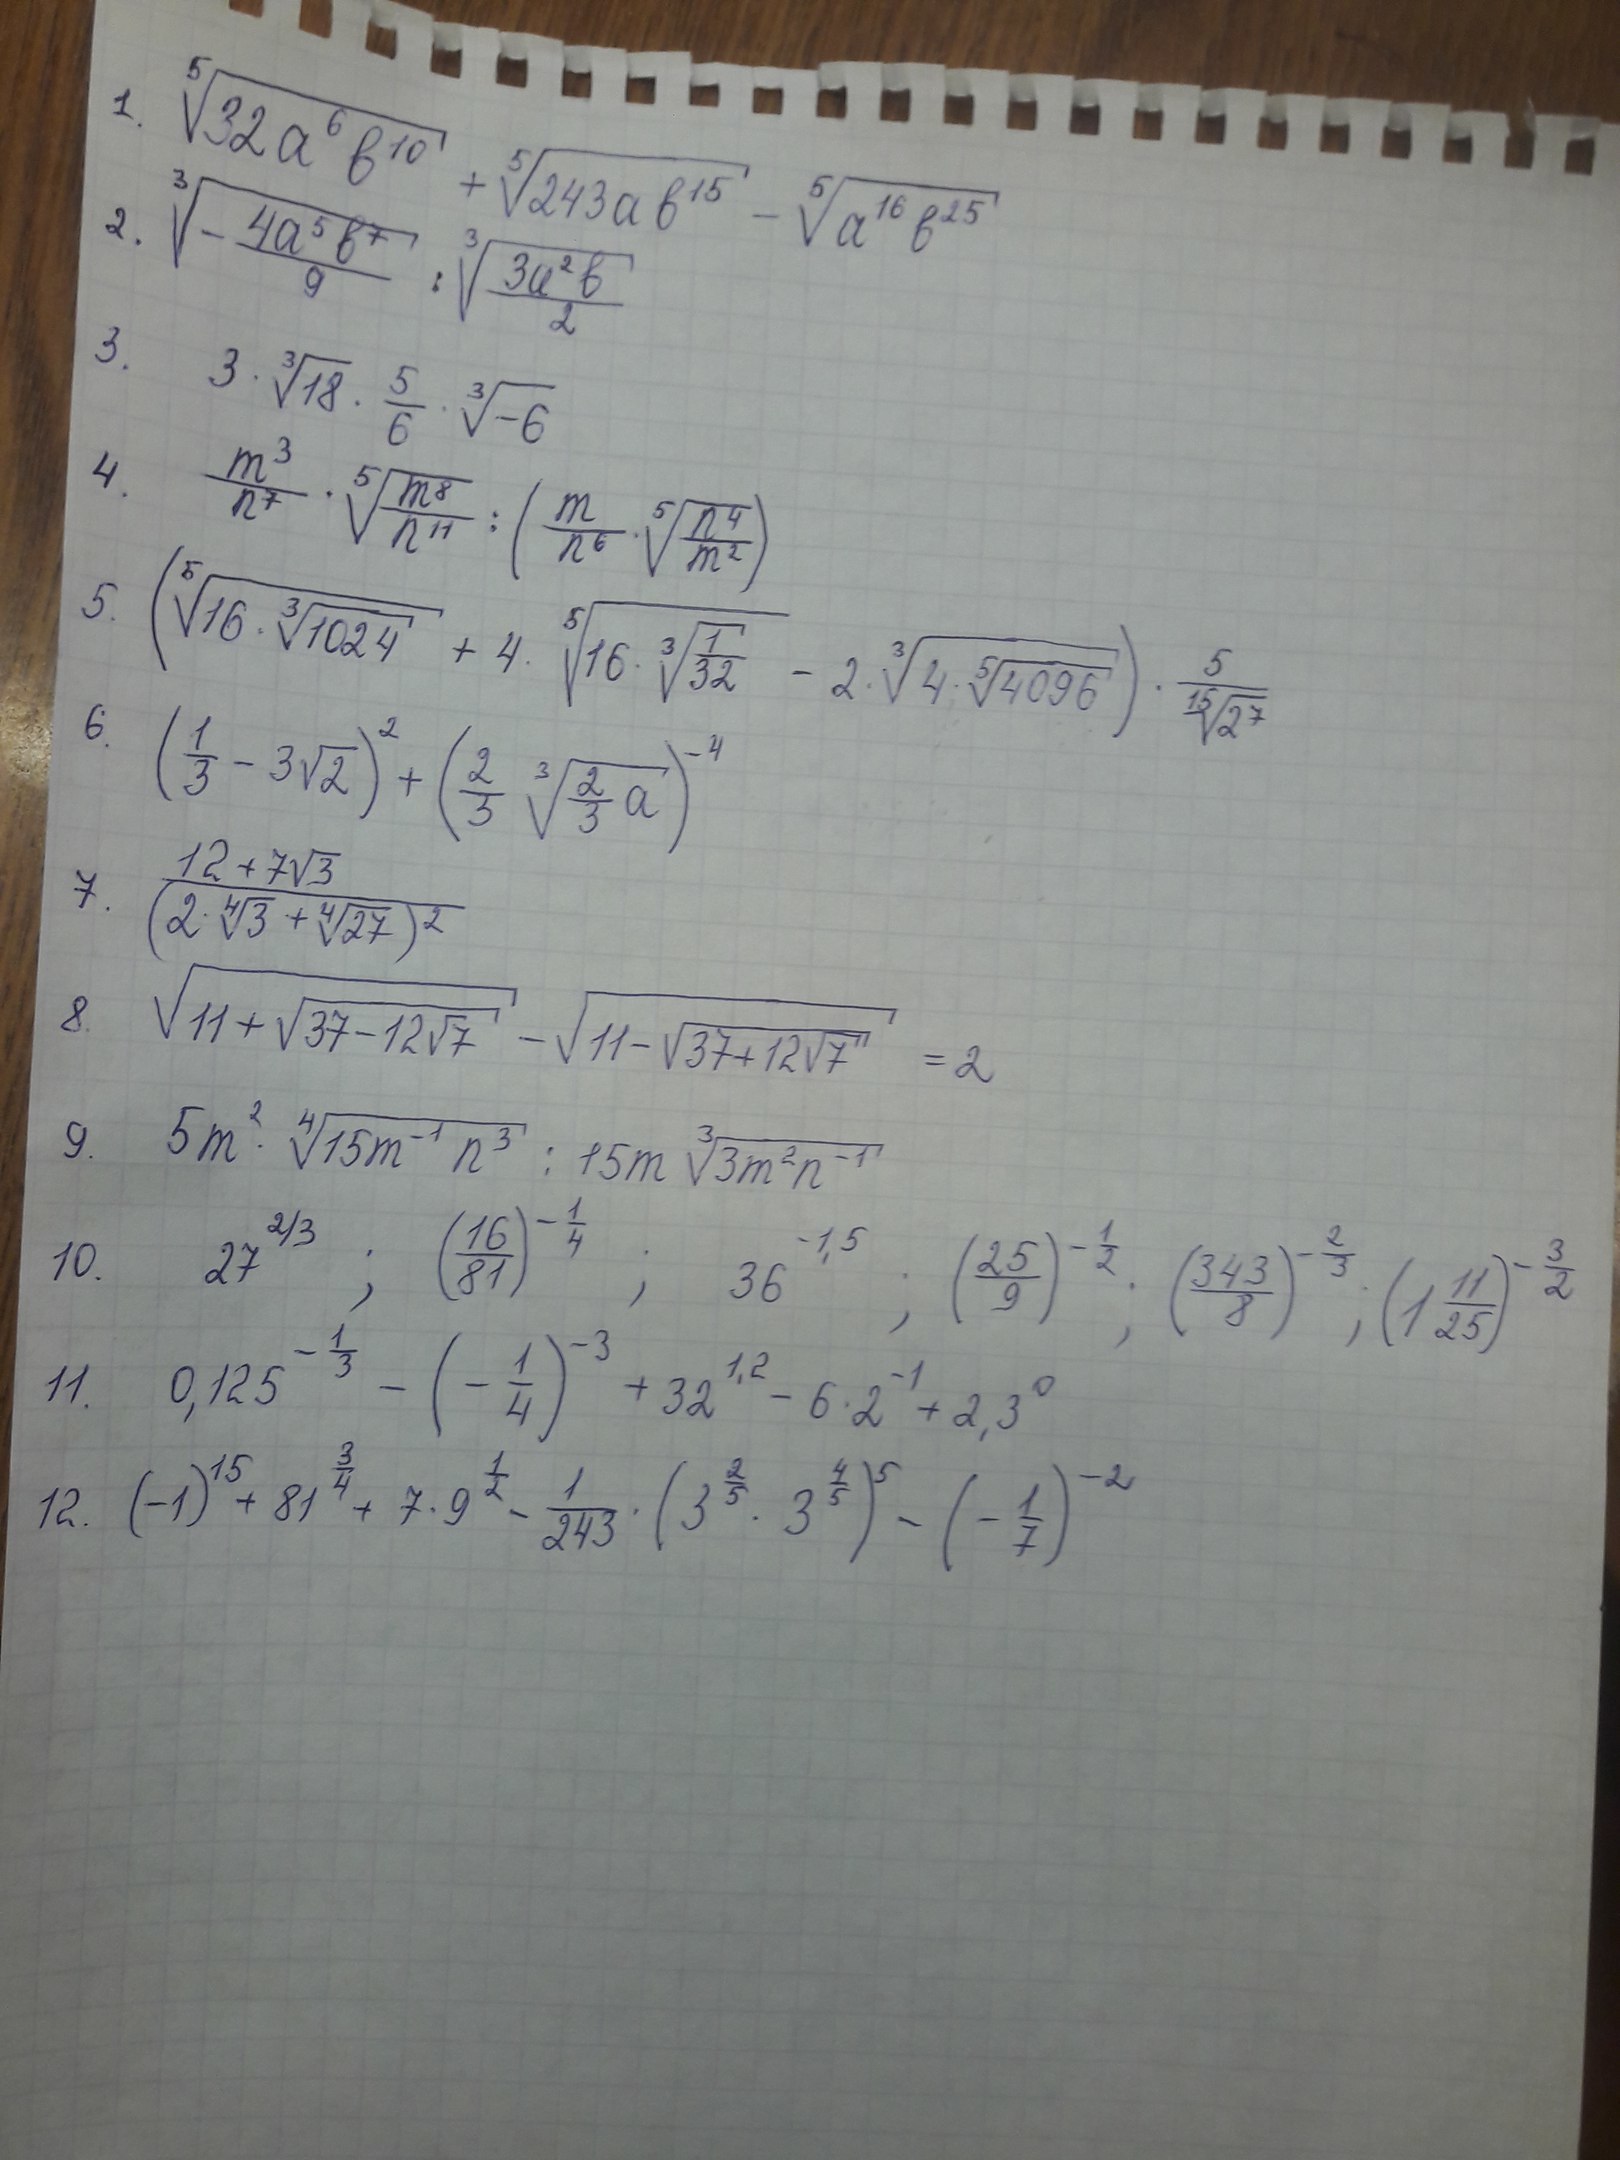 1. ⁵√(32a⁶b¹⁰) + ⁵√(243ab¹⁵) − ⁵√(a¹⁶b²⁵)
2. ³√(−4a⁵b⁷/9) : ³√(3a²b/2)
3. 3 · ³√18 · 5/6 · ³√−6
4. m³/n⁷ · ⁵√(m⁸/n¹¹) : (m/n⁶ · ⁵√(n⁴/m²))
5. (⁵√(16 · ³√1024) + 4 · ⁵√(16 · ³√(1/32)) − 2 · ³√(4 · ⁵√4096)) · 5/¹⁵√2⁷
6. (1/3 − 3√2)² + (2/3 ³√(2/3 a))⁻⁴
7. (12 + 7√3)/(2 · ⁴√3 + ⁴√27)²
8. √(11 + √(37 − 12√7)) − √(11 − √(37 + 12√7)) = 2
9. 5m² · ⁴√(15m⁻¹ n³) : 15m ³√(3m²n⁻¹)
10. 27^(2/3) ; (16/81)^(−1/4) ; 36^(−1,5) ; (25/9)^(−1/2) ; (343/8)^(−2/3) ; (1 11/25)^(−3/2)
11. 0,125^(−1/3) − (−1/4)⁻³ + 32^(1,2) − 6 · 2⁻¹ + 2,3⁰
12. (−1)¹⁵ + 81^(3/4) + 7 · 9^(1/2) − 1/243 · (3^(2/5) · 3^(4/5))⁵ − (−1/7)⁻²